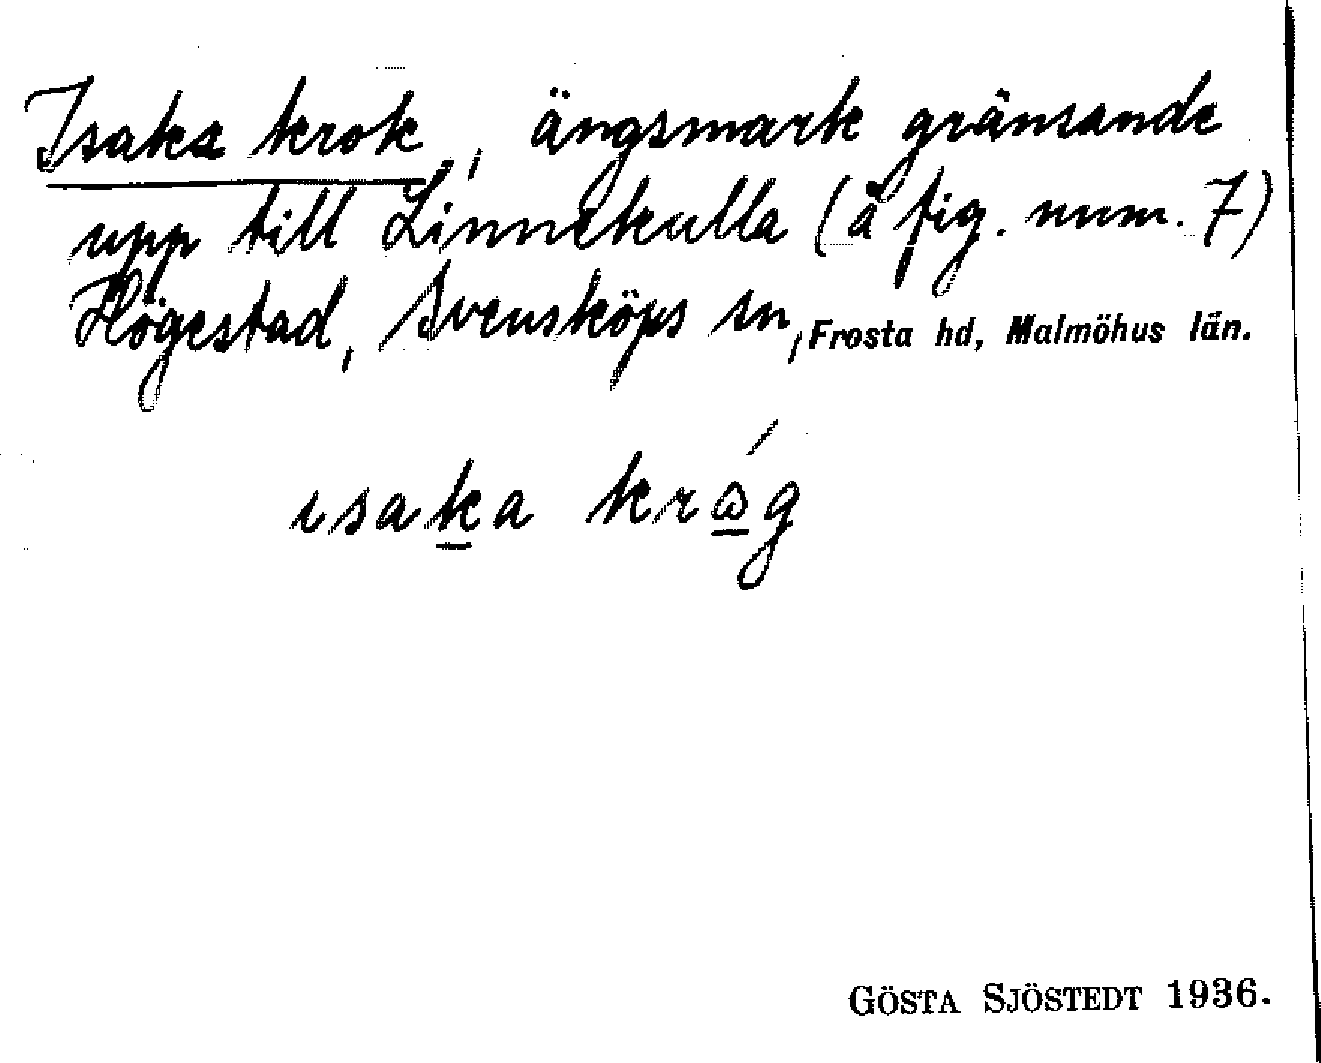 Isaka krok, ängsmark gränsande
upp till Linnekulla (å fig. num. 7)
Högestad, Svensköps sn, Frosta hd, Malmöhus län.
ısaka krɷ́g
GÖSTA SJÖSTEDT 1936.